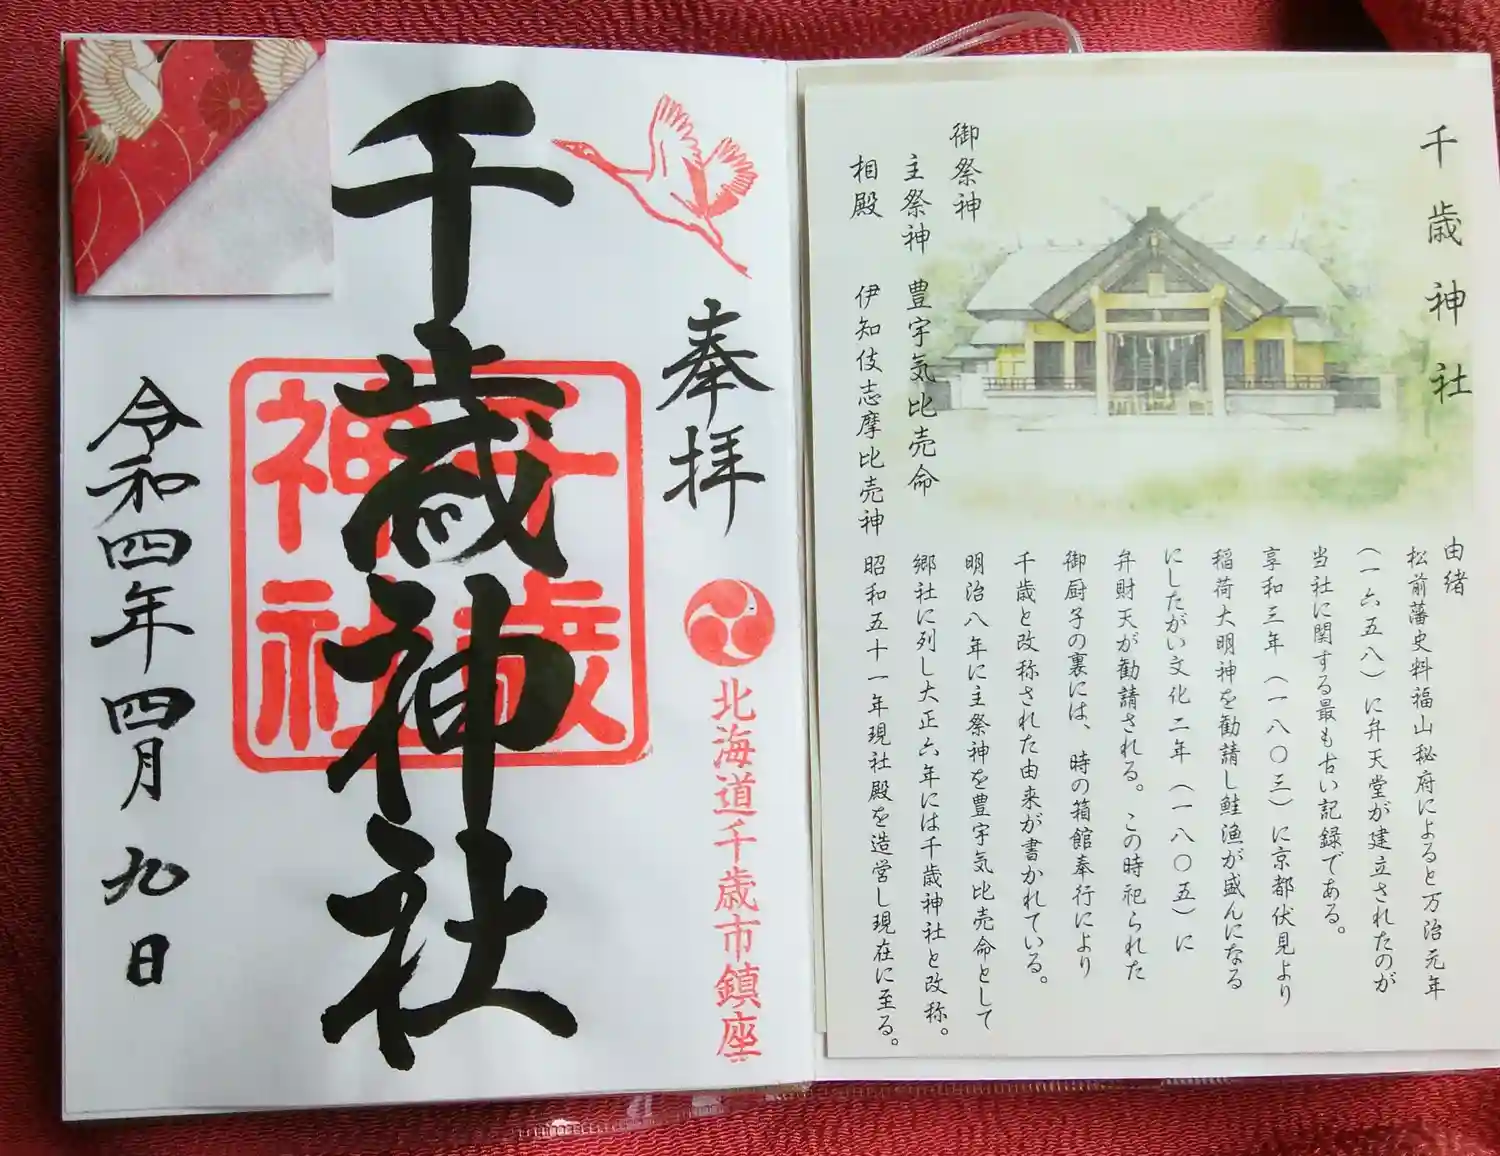 千歳神社
御祭神
主祭神 豊宇気比売命
相殿 伊知伎志摩比売神
由緒
松前藩史料福山秘府によると万治元年
(一六五八)に弁天堂が建立されたのが
当社に関する最も古い記録である。
享和三年(一八〇三)に京都伏見より
稲荷大明神を勧請し鮭漁が盛んになる
にしたがい文化二年(一八〇五)に
弁財天が勧請される。この時祀られた
御厨子の裏には、時の箱館奉行により
千歳と改称された由来が書かれている。
明治八年に主祭神を豊宇気比売命として
郷社に列し大正六年には千歳神社と改称。
昭和五十一年現社殿を造営し現在に至る。
奉拝
北海道千歳市鎮座
千歳神社
千歳
神社
令和四年四月九日